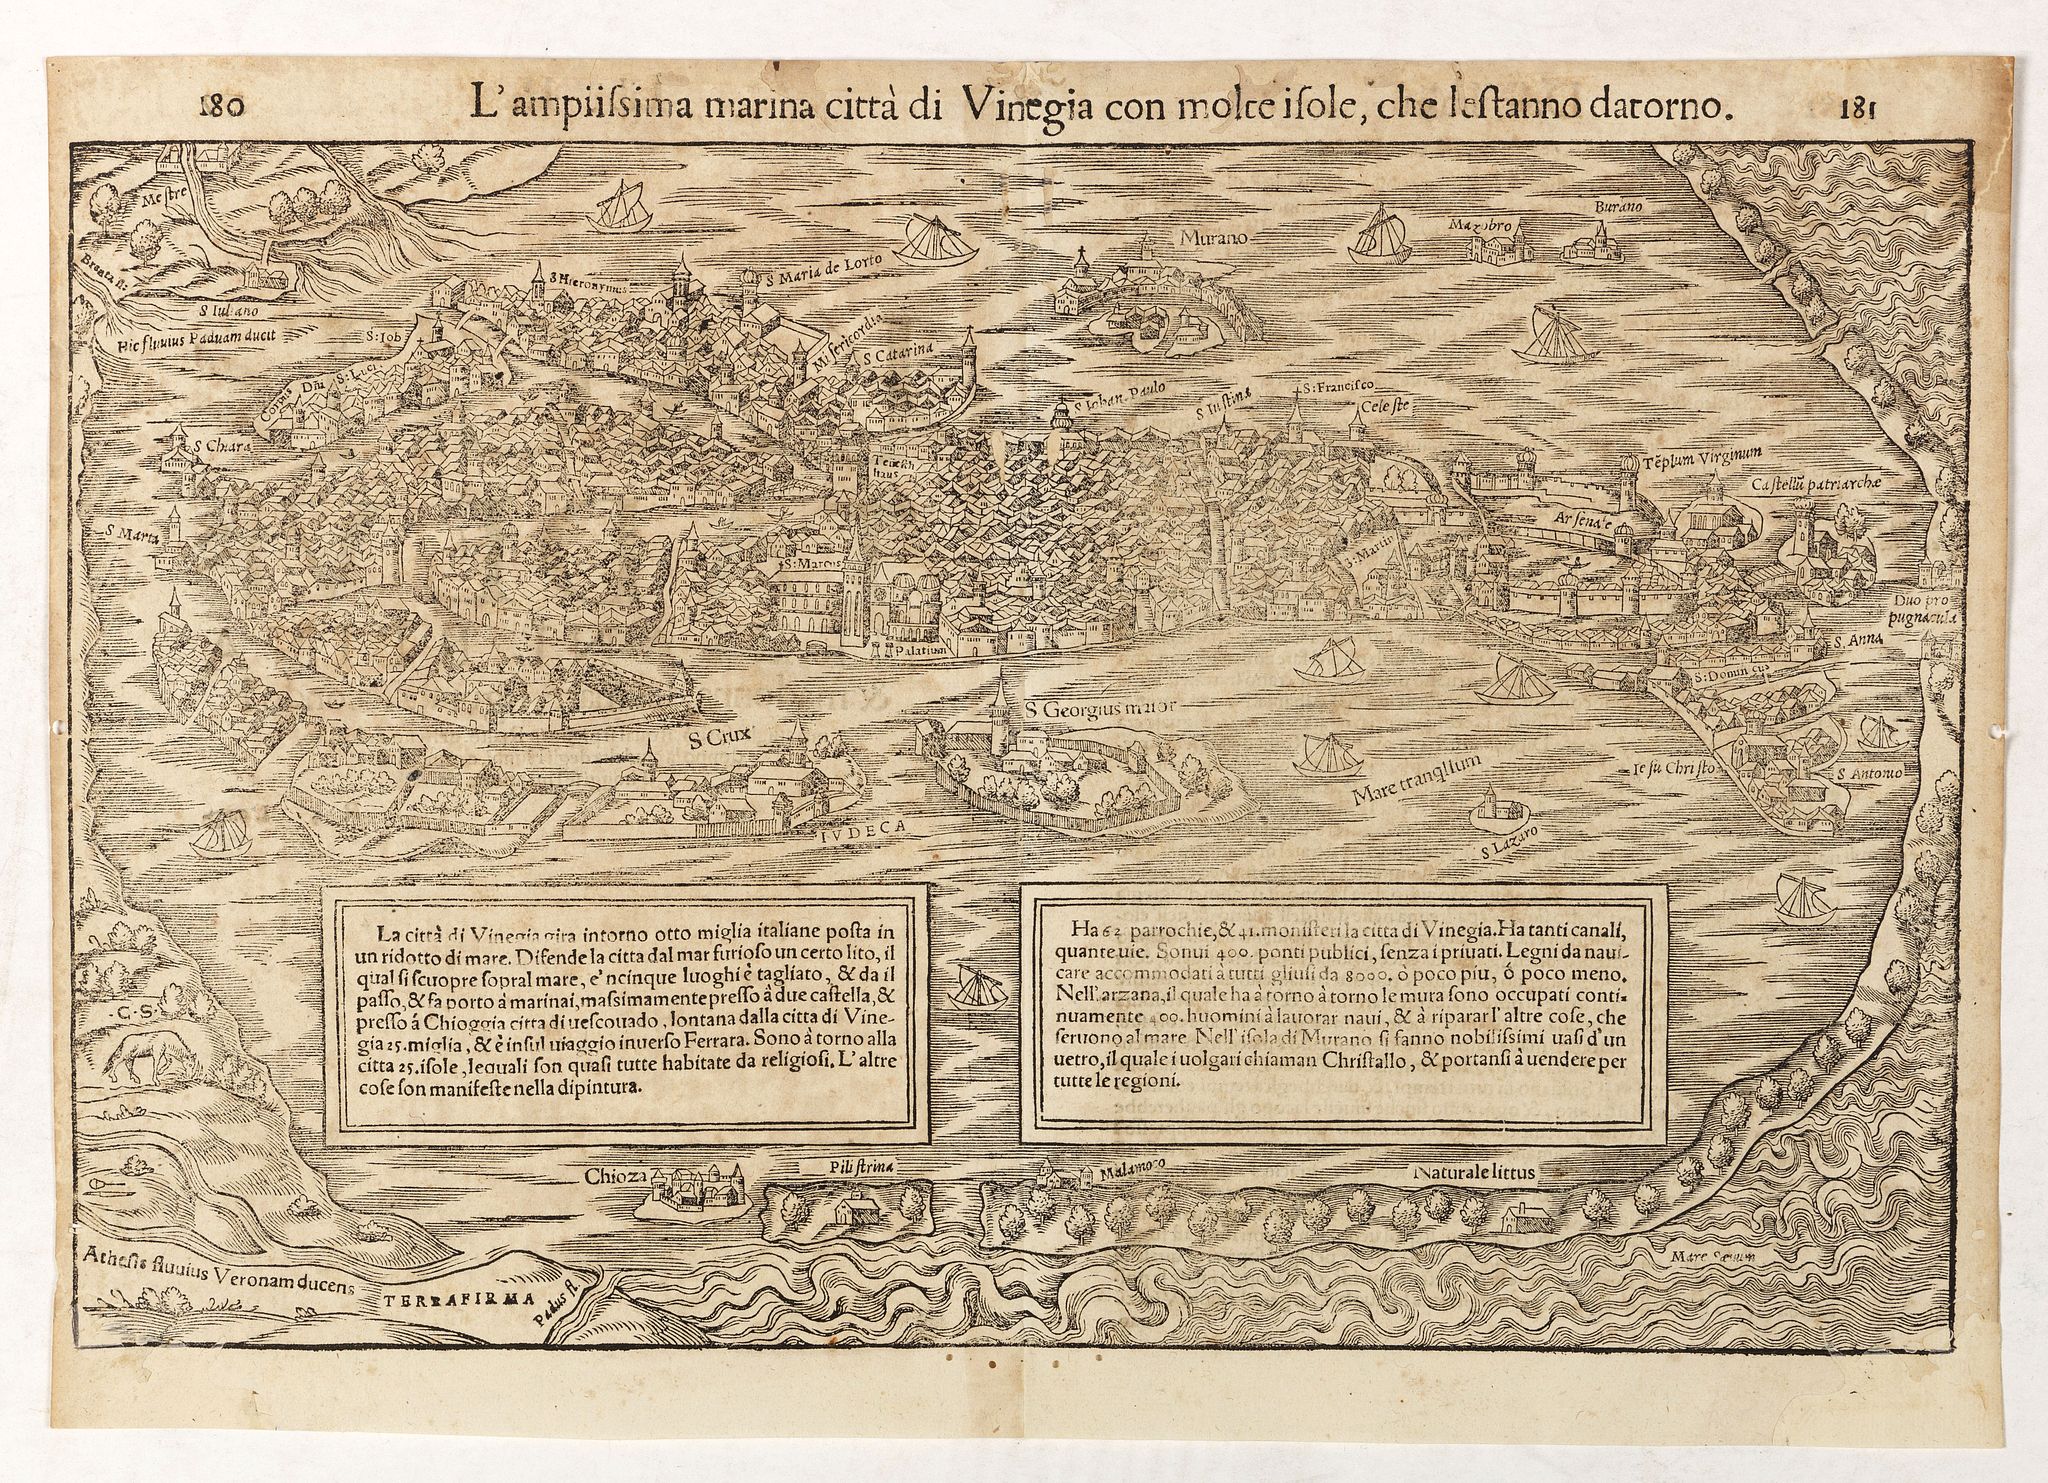 180
L'ampiissima marina città di Vinegia con molte isole, che lestanno datorno.
181
Mestre
Brenta fl:
S Iuliano
Hic fluuius Paduam ducit
S Hieronymus
S Maria de Lorto
Murano
Mazobro
Burano
S: Iob
Corpus Dni
S: Luci
Misericordia
S Catarina
S Iohan. Paulo
S Iustina
S: Francisco
Celeste
S Chiara
Teutsh
haus
Tēplum Virginum
Castellū patriarchæ
Arsenale
S Marta
S: Marcus
S: Martin
Duo pro
pugnacula
Palatium
S. Anna
S: Dominicus
S Crux
S Georgius maior
Iesu Christo
S Antonio
Mare tranqllum
IVDECA
S Lazaro
La città di Vinegia gira intorno otto miglia italiane posta in
un ridotto di mare. Difende la citta dal mar furioso un certo lito, il
qual si scuopre sopral mare, e'ncinque luoghi è tagliato, & da il
passo, & fa porto à marinai, massimamente presso à due castella, &
presso á Chioggia citta di uescouado, lontana dalla citta di Vine-
gia 25. miglia, & è insul uiaggio inuerso Ferrara. Sono à torno alla
citta 25. isole, lequali son quasi tutte habitate da religiosi. L'altre
cose son manifeste nella dipintura.
Ha 62 parrochie, & 41. monisteri la citta di Vinegia. Ha tanti canali,
quante uie. Sonui 400. ponti publici, senza i priuati. Legni da naui-
care accommodati à tutti gliusi da 8000. ò poco piu, ó poco meno.
Nell'arzana, il quale ha à torno à torno le mura sono occupati conti-
nuamente 400. huomini à lauorar naui, & à riparar l'altre cose, che
seruono al mare. Nell'isola di Murano si fanno nobilissimi uasi d'un
uetro, il quale i uolgari chiaman Christallo, & portansi à uendere per
tutte le regioni.
·C·S·
Chioza
Pilistrina
Malamoco
Naturale littus
Mare Sæuum
Athesis fluuius Veronam ducens
TERRAFIRMA
Padus fl.